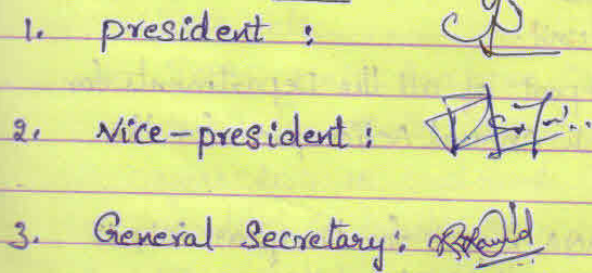 1. president :
2. Vice-president :
3. General Secretary :